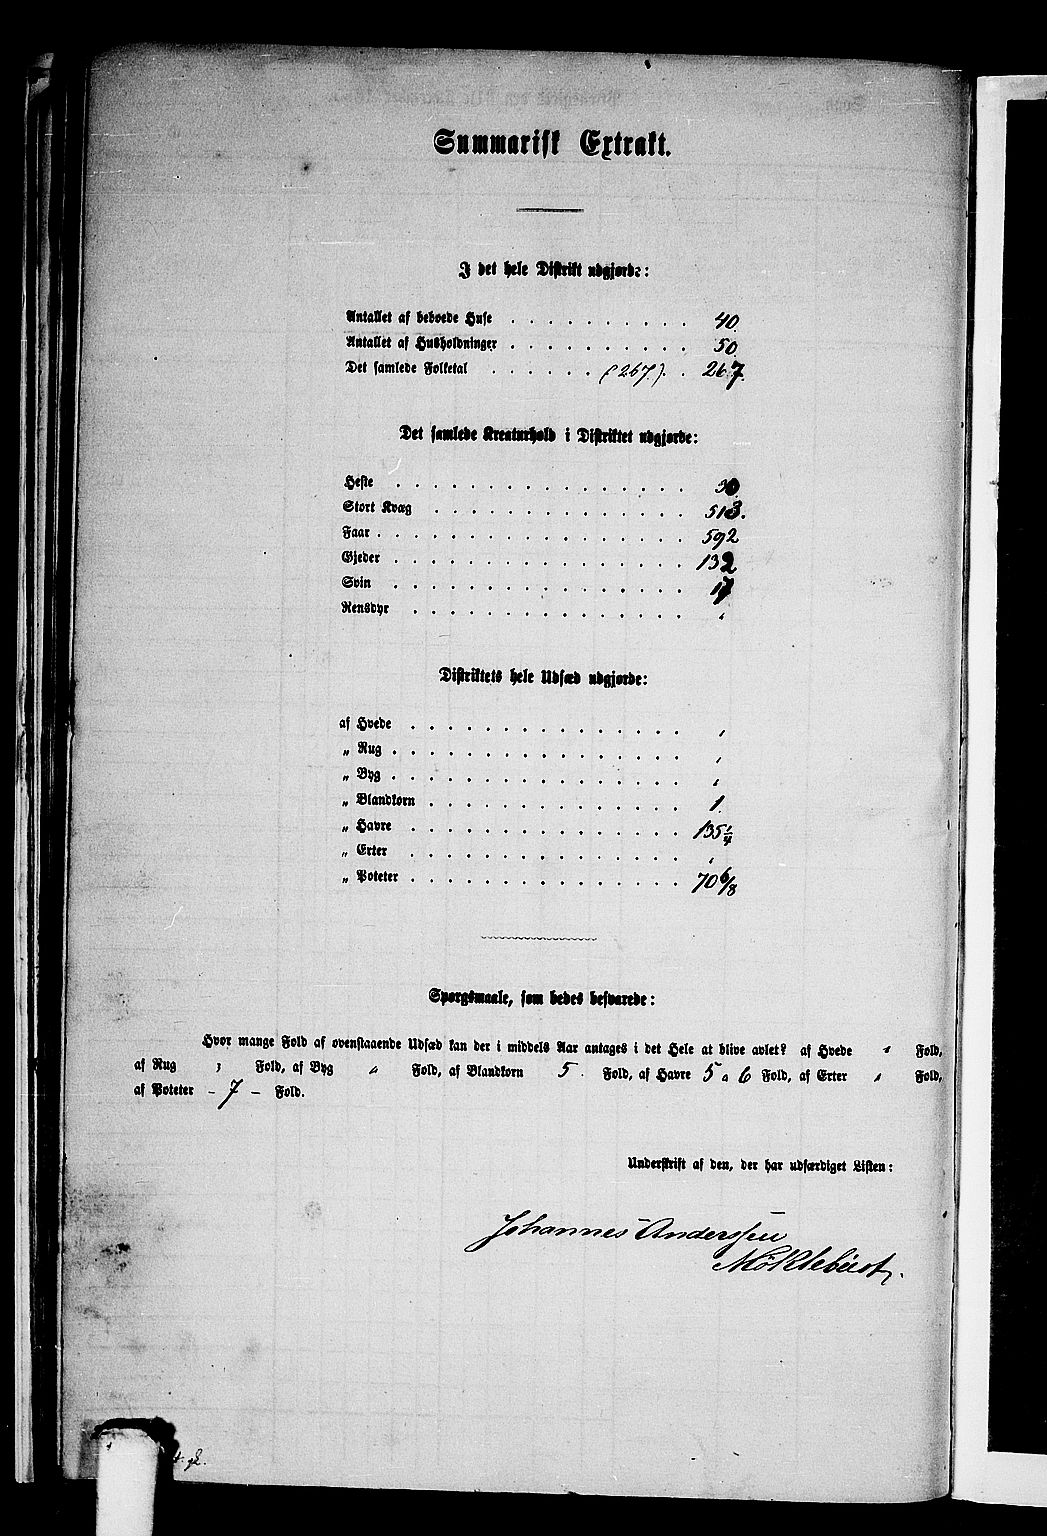 Summarisk Extrakt.
I det hele Distrikt udgjorde:
Antallet af beboede Huse . . . . . . . . . . 40
Antallet af Husholdninger . . . . . . . . . . 50
Det samlede Folketal . . . . . . (267.) . . 267.
Det samlede Kreaturhold i Distriktet udgjorde:
Heste . . . . . . . . . . . . . . . 30
Stort Kvæg . . . . . . . . . . . . . 513.
Faar . . . . . . . . . . . . . . . . 592
Gjeder . . . . . . . . . . . . . . . 132
Svin . . . . . . . . . . . . . . . 17
Rensdyr . . . . . . . . . . . . . . "
Distriktets hele Udsæd udgjorde:
af Hvede . . . . . . . . . . . . . . "
„ Rug . . . . . . . . . . . . . . . "
„ Byg . . . . . . . . . . . . . . . "
„ Blandkorn . . . . . . . . . . . . . 1.
„ Havre . . . . . . . . . . . . . . 135 1/4
„ Erter . . . . . . . . . . . . . . "
„ Poteter . . . . . . . . . . . . . . 70 6/8
Spørgsmaale, som bedes besvarede:
Hvor mange Fold af ovenstaaende Udsæd kan der i middels Aar antages i det Hele at blive avlet? af Hvede " Fold,
af Rug " Fold, af Byg " Fold, af Blandkorn 5. Fold, af Havre 5 a 6 Fold, af Erter " Fold,
af Poteter – 7 – Fold.
Underskrift af den, der har udfærdiget Listen:
Johannes Anderssen
Møklebust.